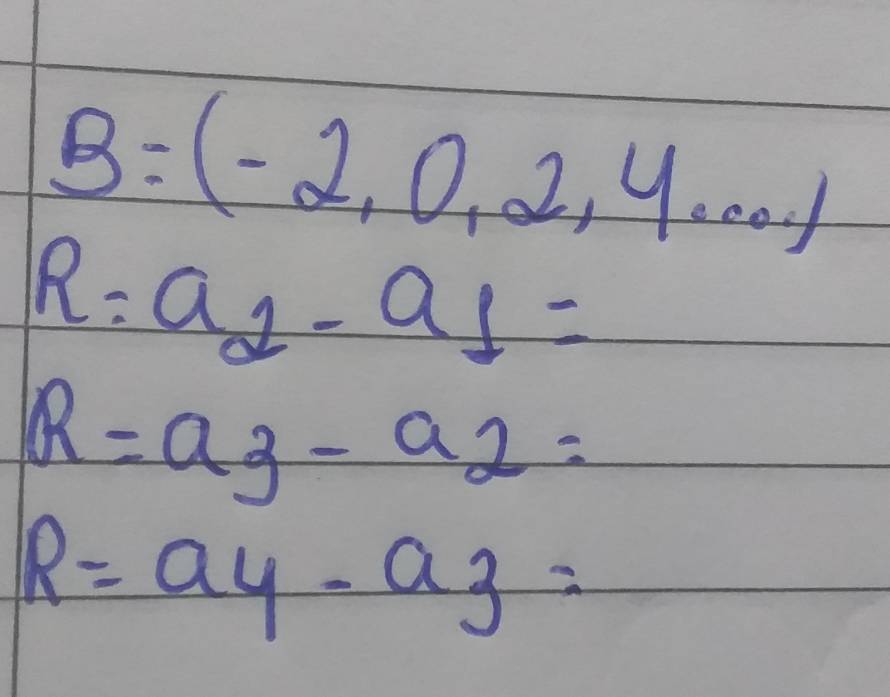 B=(-2,0,2,4....)
R=a2-a1=
R=a3-a2=
R=a4-a3=